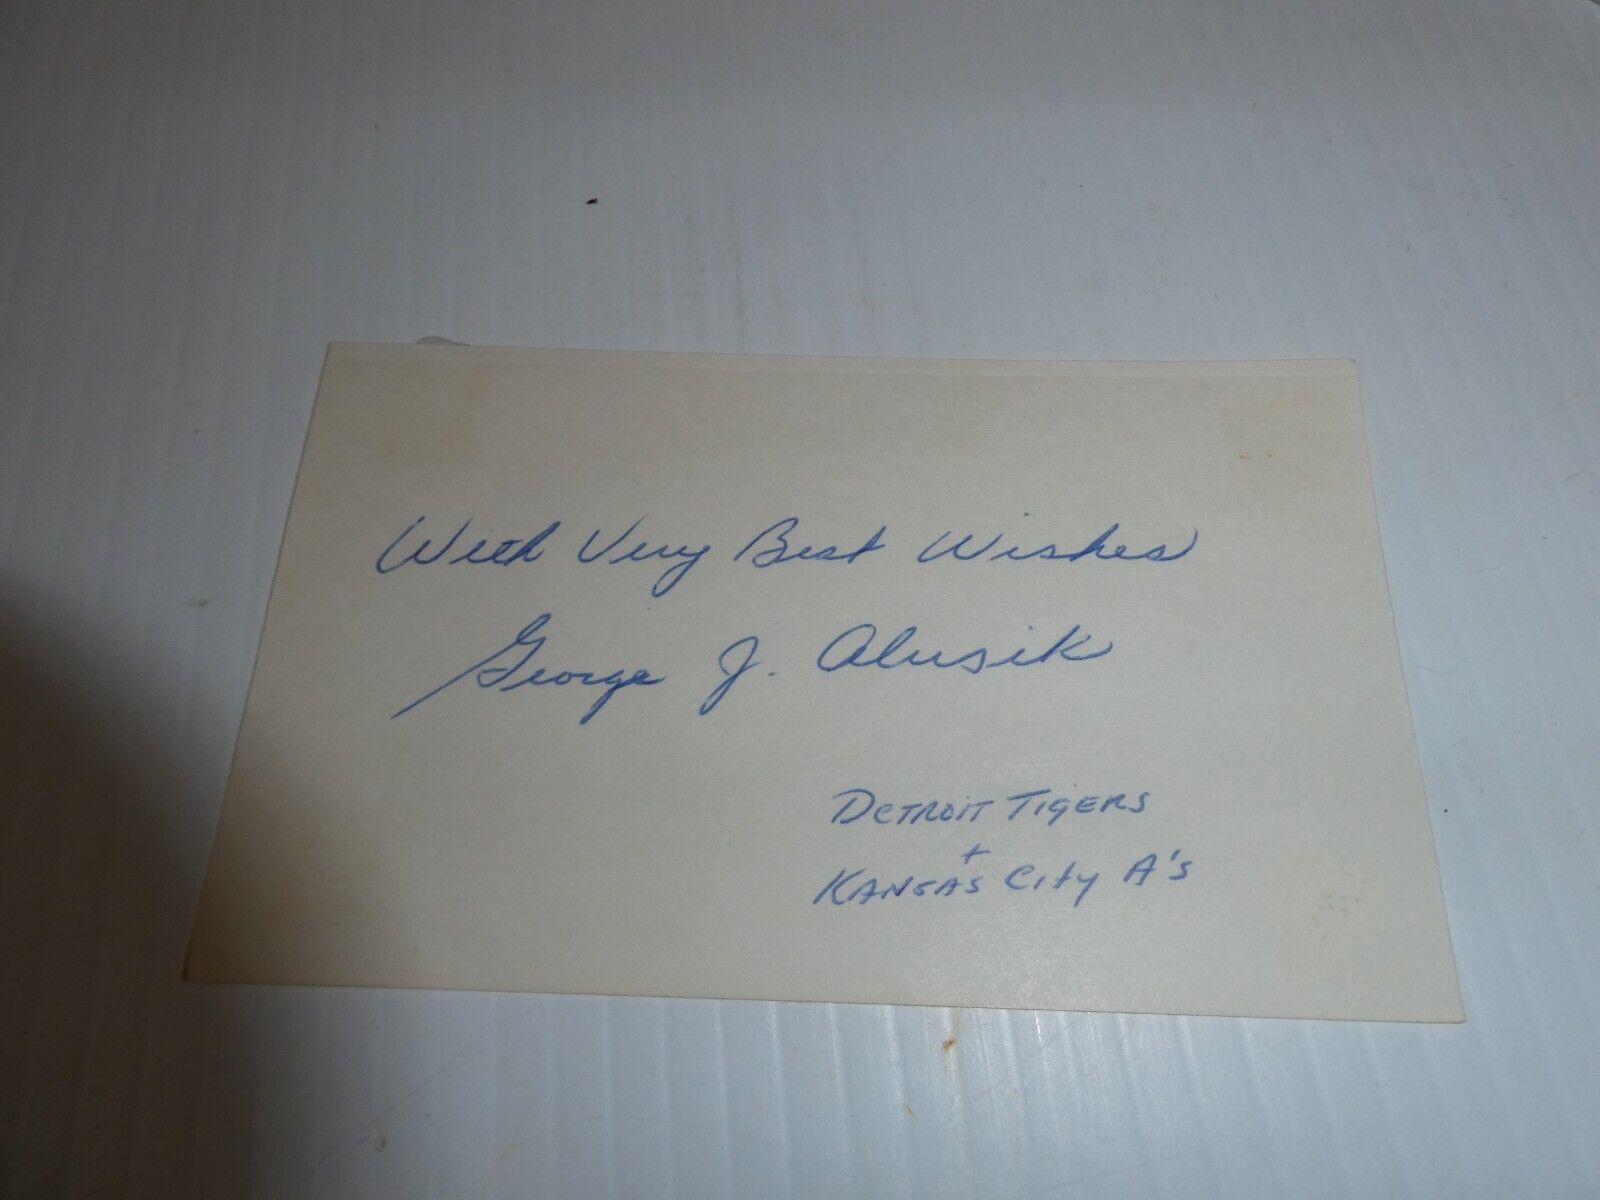 With Very Best Wishes
George J. Alusik
DETROIT TIGERS
+
KANSAS City A's